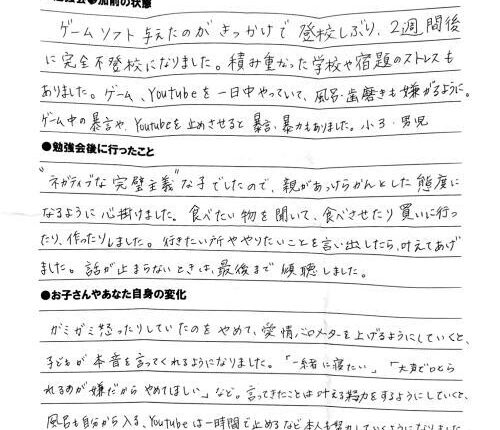 勉強会●加前の状態
ゲームソフト与えたのがきっかけで登校しぶり、2週間後
に完全不登校になりました。積み重なった学校や宿題のストレスも
ありました。ゲーム、Youtubeを一日中やっていて、風呂・歯磨きも嫌がるように。
ゲーム中の暴言や、Youtubeを止めさせると暴言、暴力もありました。小3・男児
●勉強会後に行ったこと
"ネガティブな完璧主義"な子でしたので、親があっけらかんとした態度に
なるように心掛けました。食べたい物を聞いて、食べさせたり買いに行っ
たり、作ったりしました。行きたい所ややりたいことを言い出したら、叶えてあげ
ました。話が止まらないときは、最後まで傾聴しました。
●お子さんやあなた自身の変化
ガミガミ怒ったりしていたのをやめて、愛情バロメーターを上げるようにしていくと、
子どもが本音を言ってくれるようになりました。「一緒に寝たい」「大声で口とら
れるのが嫌だからやめてほしい」など。言ってきたことは叶える努力をするようにしていくと、
風呂も自分から入る、Youtubeは一時間で止めるなど本人も努力していくようになりました